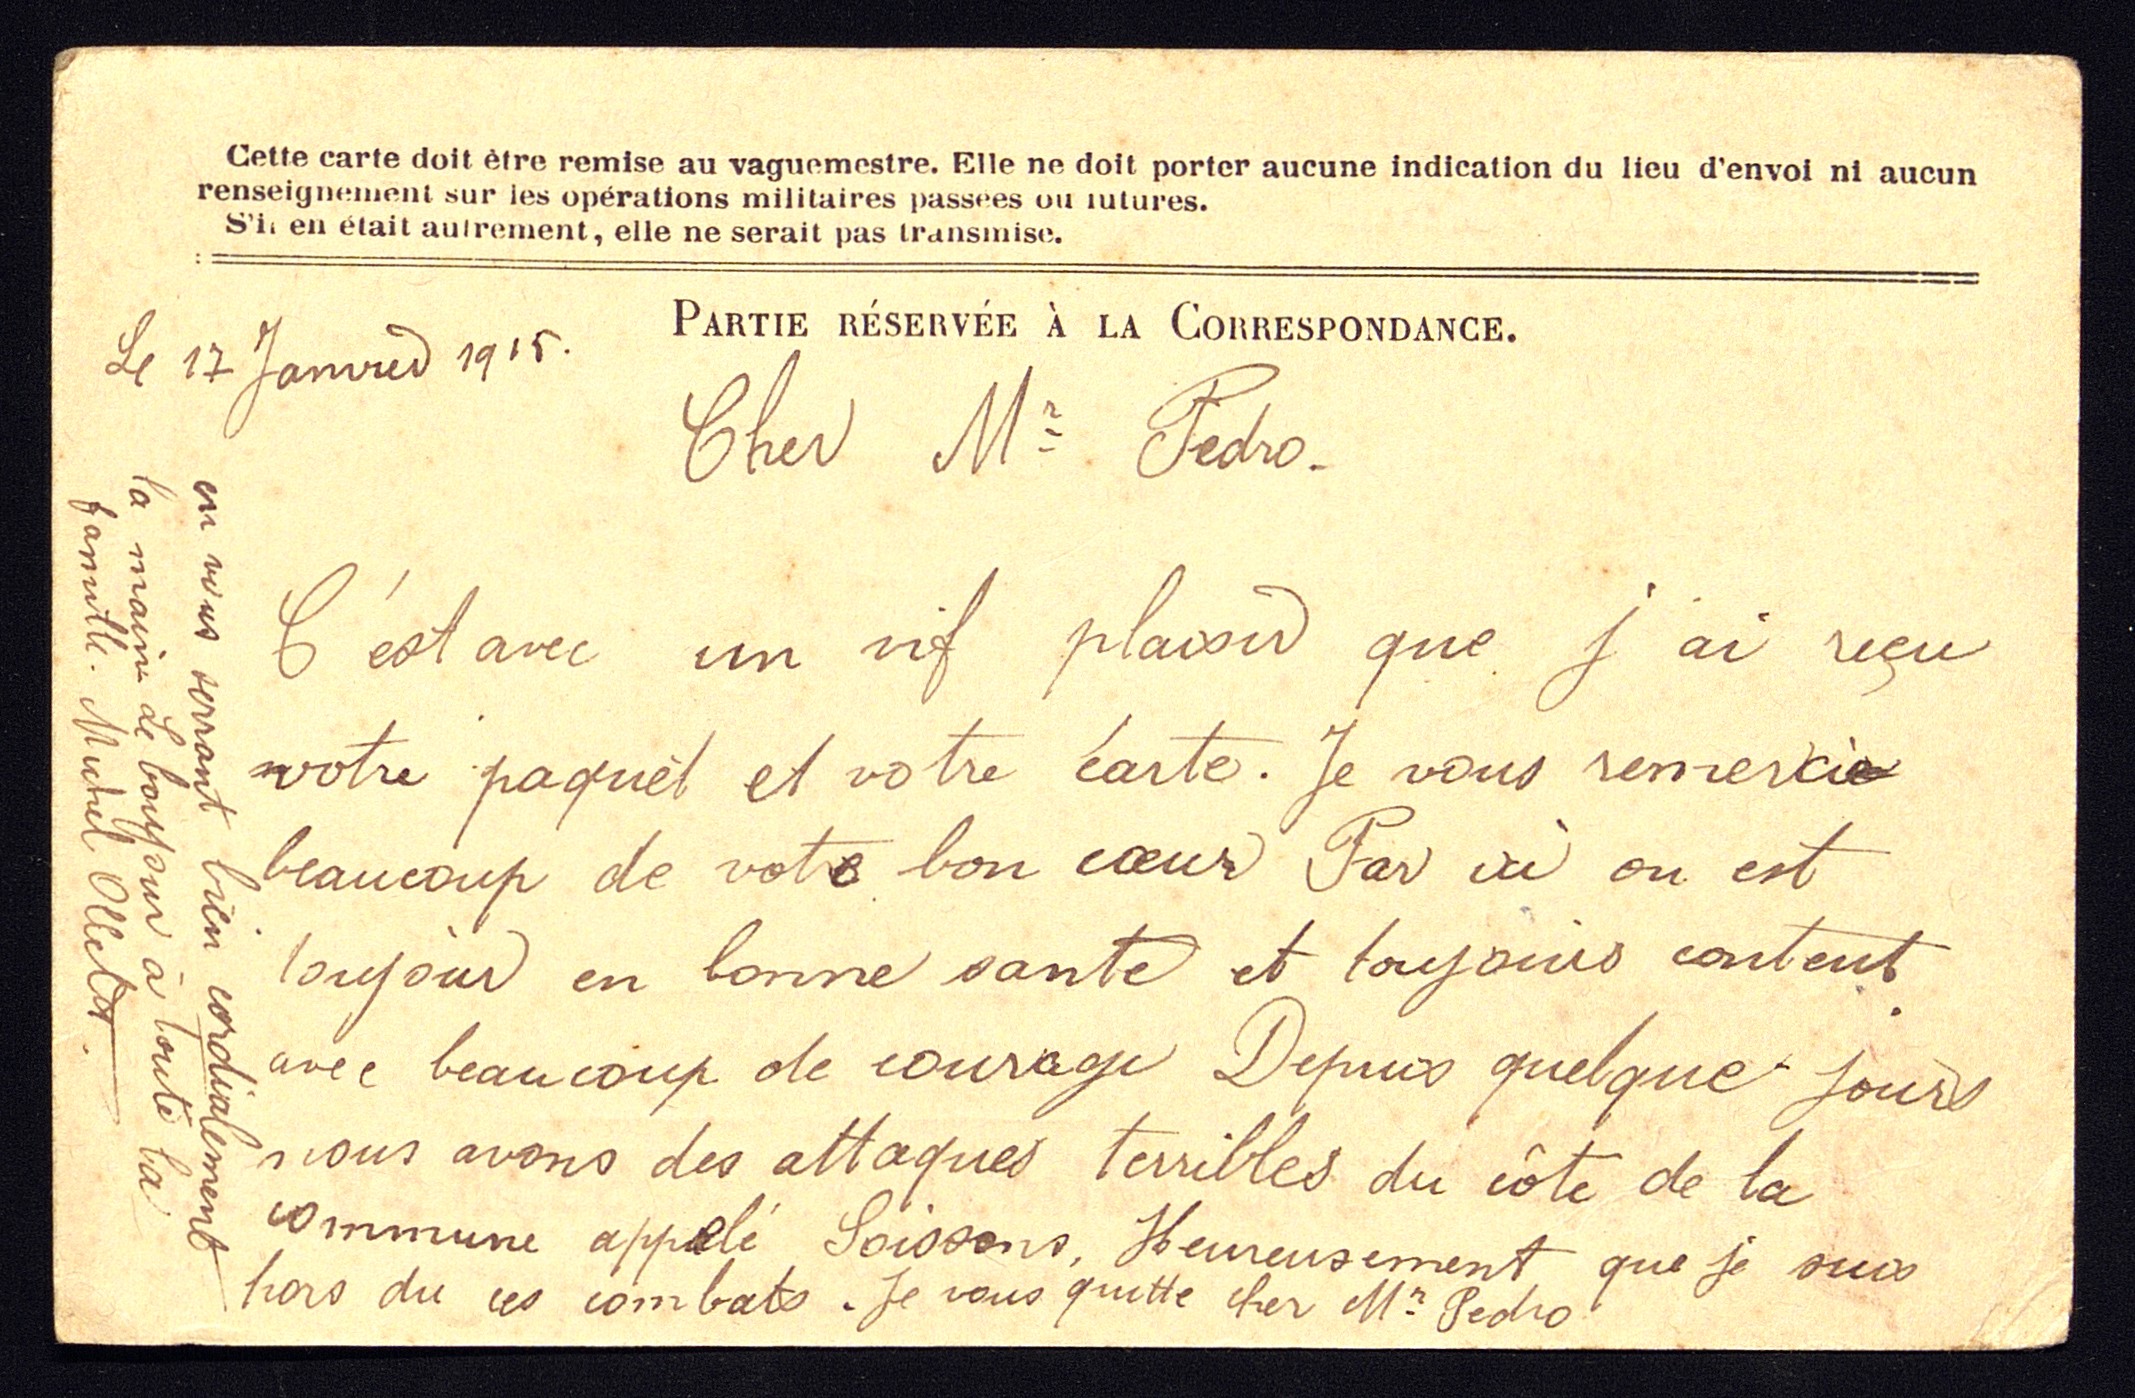 Cette carte doit être remise au vaguemestre. Elle ne doit porter aucune indication du lieu d'envoi ni aucun
renseignement sur les opérations militaires passées ou futures.
S'il en était autrement, elle ne serait pas transmise.
PARTIE RÉSERVÉE À LA CORRESPONDANCE.
Le 17 Janvier 1915.
Cher Mr Pedro.
C'est avec un vif plaisir que j'ai reçu
votre paquet et votre carte. Je vous remercie
beaucoup de vote bon cœur Par ici on est
toujour en bonne sante et toujours content
avec beaucoup de courage Depuis quelque jours
nous avons des attaques terribles du côte de la
commune appelé Soissons, Heureusement que je suis
hors du ces combats. Je vous quitte cher Mr Pedro
en vous serrant bien cordialement
la main Le bonjour à toute la
famille. Michel